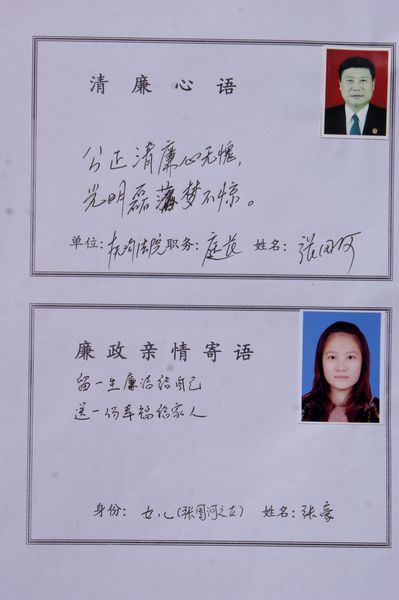 清廉心语
公正清廉心无愧,
光明磊落梦不惊。
单位:扶沟法院职务:庭长 姓名:张国河
廉政亲情寄语
留一生廉洁给自己
送一份幸福给家人
身份: 女儿(张国河之女) 姓名:张豪